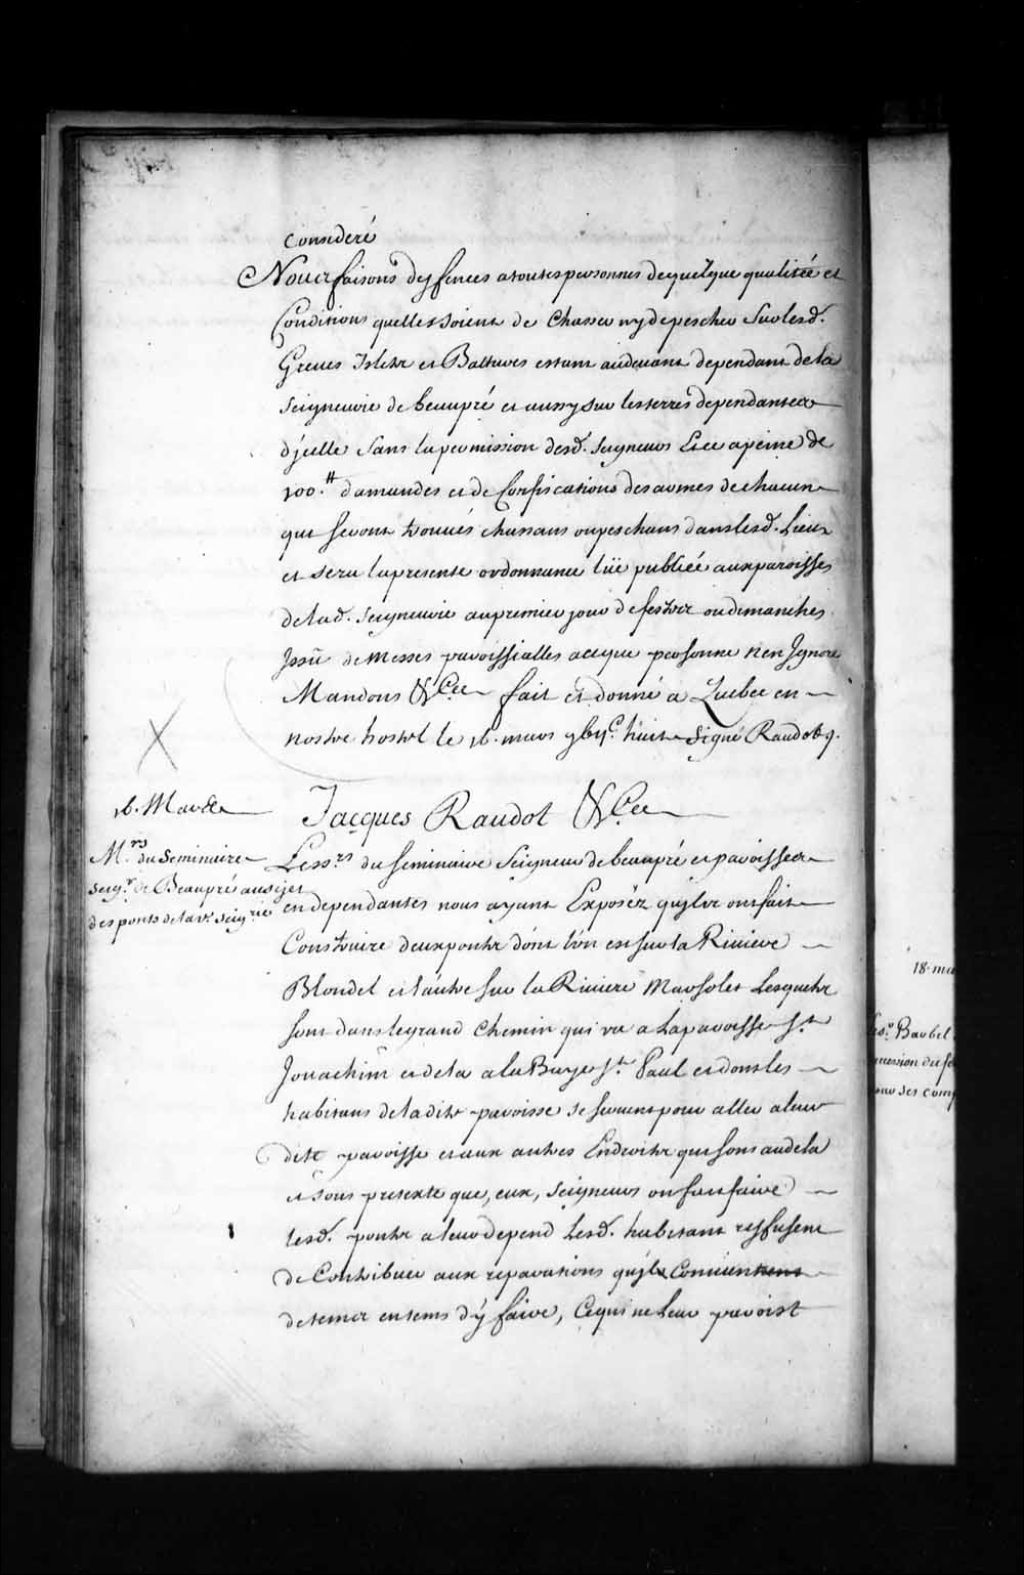 Consideré
Nous faisons deffences a toutes personnes de quelque qualitée et
Conditions quelles soient de Chasser ny de pescher Sur lesd.
Greves Islets et Battures estant audevant dependant de la
Seigneurie de beaupré et aussy sur les terres dependantes
d'jcelle Sans la permission desd. Seigneurs Et ce a peine de
100.tt damandes et de Confiscations des armes de chacun
qui seront trouués chassans ou peschans dans lesd. Lieux
et sera la presente ordonnance lüe publiée aux paroisses
de lad. Seigneurie au premier jour de festes ou dimanches
Jssüe de Messes paroissialles a ce que personne n'en Jgnore
Mandons &c.a fait et donné a Quebec en
nostre hostel le 16. mars 
Signé Raudot
16. Mars
Jacques Raudot &c.a
M.rs du Seminaire
seig.rs de Beaupré au sujet
des ponts de lad. Seig.rie
Les s.rs du Seminaire Seigneurs de beaupré et paroisses
en dependantes nous ayant Exposéz qu'jls ont fait
Construire deux ponts dont l'un est sur la Riuiere
Blondel et l'autre sur la Riuiere Marsolet Lesquels
sont dans le grand Chemin qui va a La paroisse S.t
Jouachim et de la a la Baye S.t Paul et dont les
habitans de ladite paroisse se seruent pour aller a leur
dite paroisse et aux autres Endroits qui sont au dela
et sous pretexte que, eux, Seigneurs ont fait faire
lesd. ponts a leur depend Lesd. habitans reffusent
de Contribuer aux reparations qu'jls Conuient
de tems en tems d'y faire, Ce qui ne leur paroist
18. ma
Les. Barbel
our ses comp